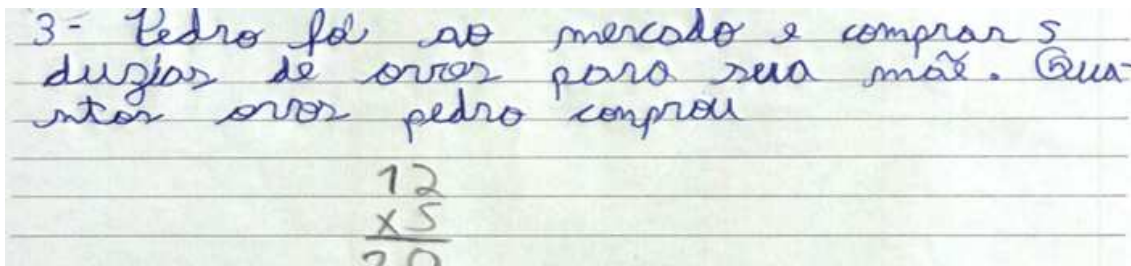 3- Pedro foi ao mercado e comprar 5
duzias de ovos para sua mãe. Qua-
ntos ovos pedro comprou
12
x5